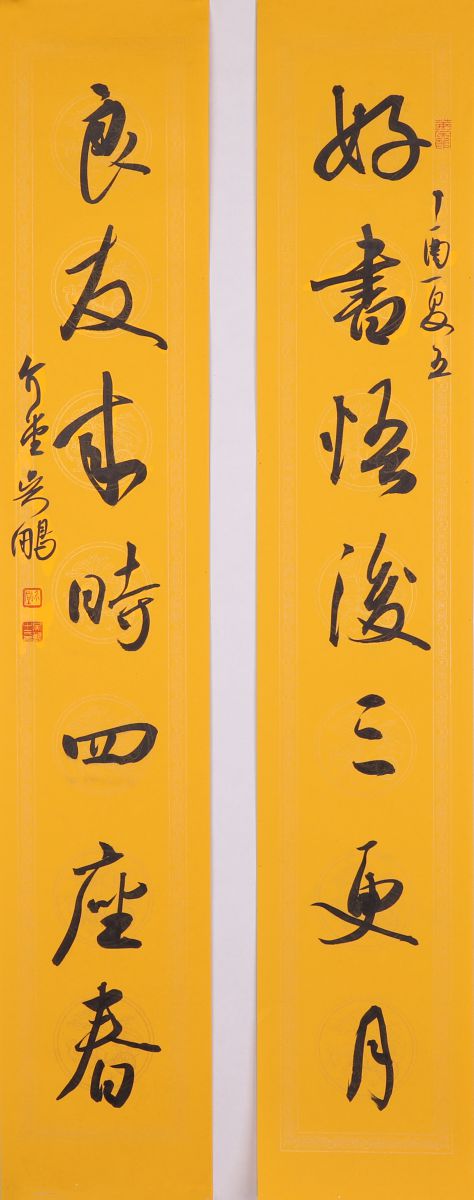 好書悟後三更月
丁酉夏五
良友來時四座春
介堂吳鵬